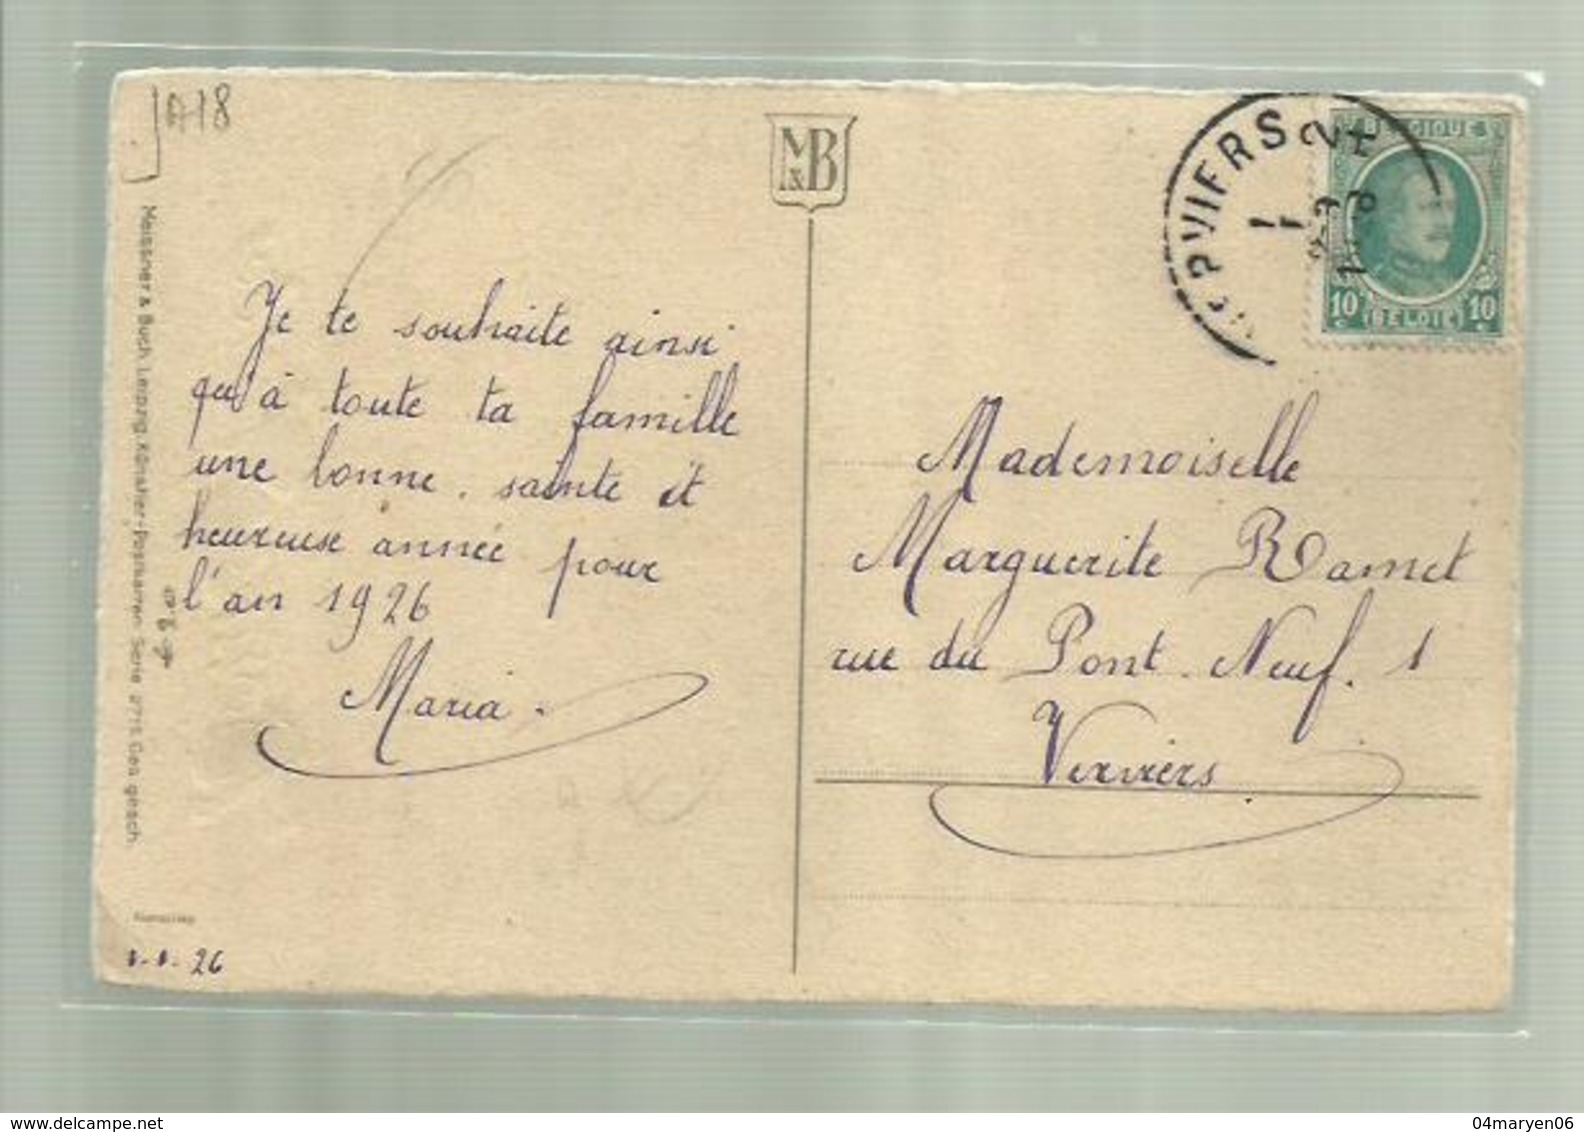 A18
M&B
BELGIQUE
10c (BELGIË) 10c
VIERS
Je te souhaite ainsi
qu'à toute ta famille
une bonne, sainte et
heureuse année pour
l'an 1926
Maria.
Mademoiselle
Marguerite Ramet
rue du Pont-Neuf. 1
Verviers.
Meissner & Buch, Leipzig, Künstler-Postkarten Serie 2715 Ges. gesch.
1-1-26
www.delcampe.net
04maryen06